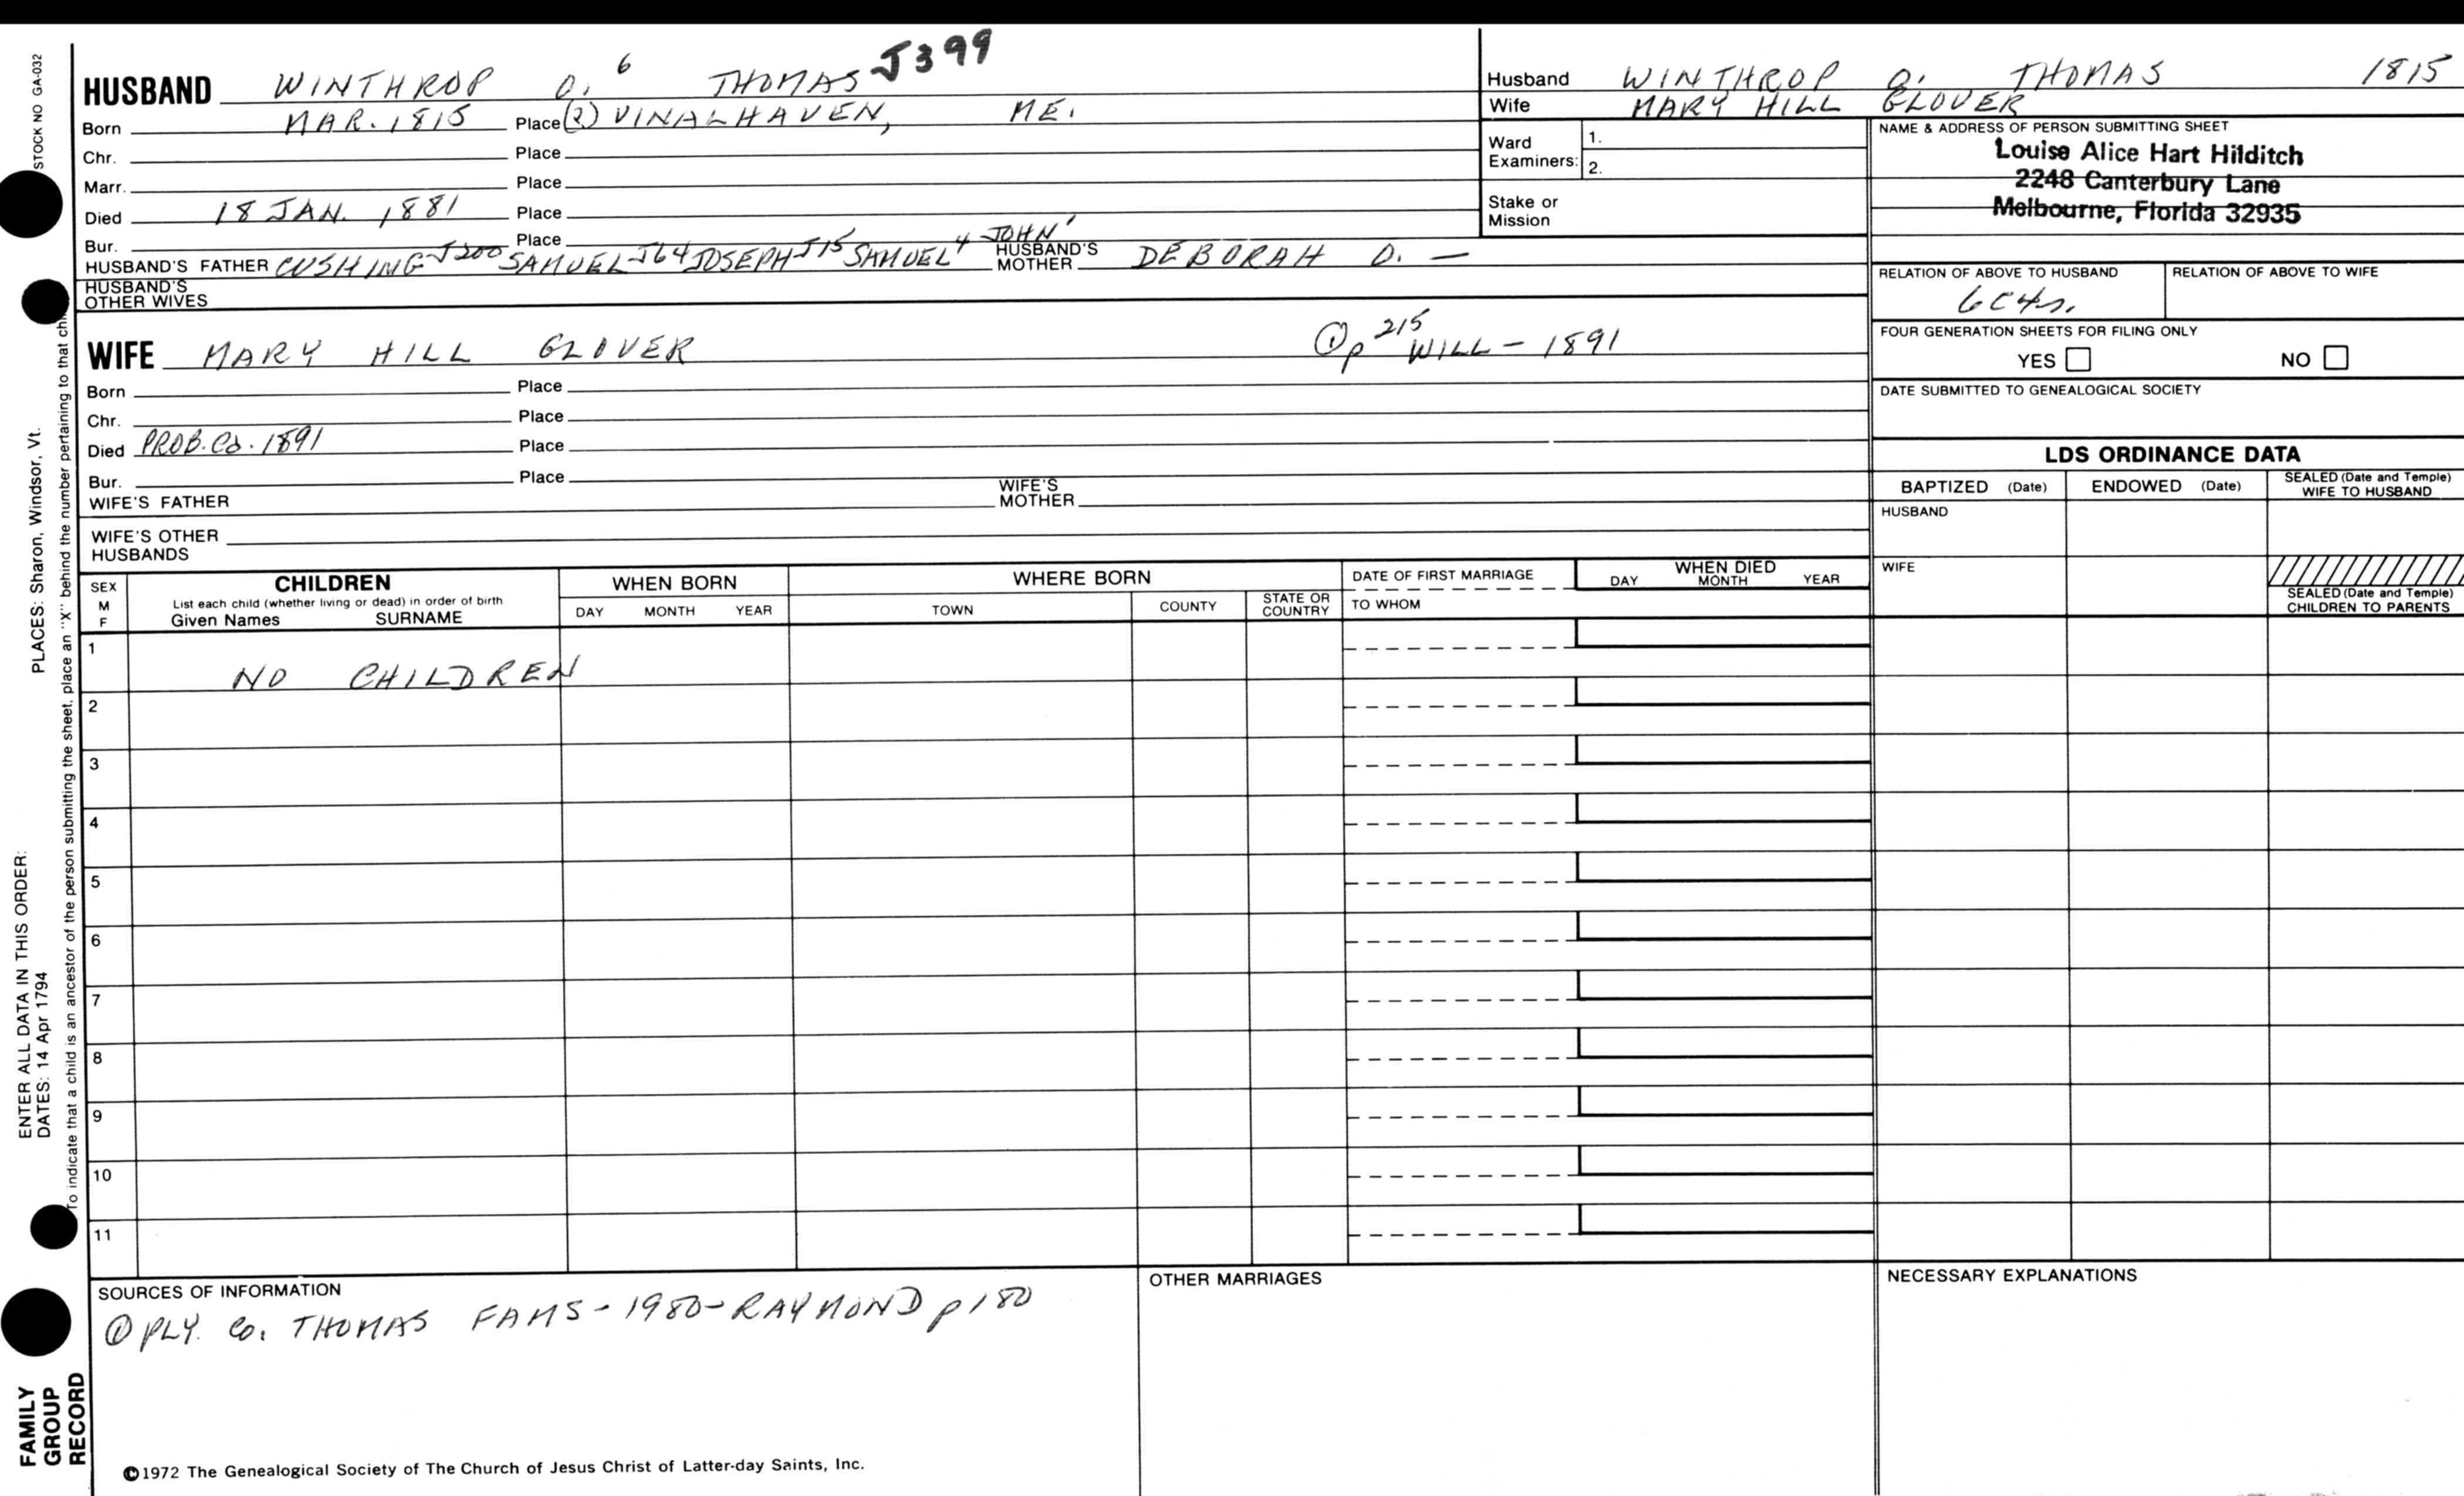 STOCK NO GA-032
PLACES: Sharon, Windsor, Vt.
ENTER ALL DATA IN THIS ORDER:
DATES: 14 Apr 1794
To indicate that a child is an ancestor of the person submitting the sheet, place an "X" behind the number pertaining to that chi
FAMILY
GROUP
RECORD
HUSBAND WINTHROP O. 6 THOMAS J399
Born MAR. 1815 Place (2) VINALHAVEN, ME.
Chr. Place
Marr. Place
Died 18 JAN. 1881 Place
Bur. Place
HUSBAND'S FATHER CUSHING J200 SAMUEL J64 JOSEPH J15 SAMUEL 4 JOHN' HUSBAND'S MOTHER DEBORAH D. —
HUSBAND'S
OTHER WIVES
WIFE MARY HILL GLOVER ① p 215 WILL - 1891
Born Place
Chr. Place
Died PROB. Co. 1891 Place
Bur. Place
WIFE'S FATHER WIFE'S MOTHER
WIFE'S OTHER
HUSBANDS
Husband WINTHROP O. THOMAS 1815
Wife MARY HILL GLOVER
Ward
Examiners: 1.
2.
Stake or
Mission
NAME & ADDRESS OF PERSON SUBMITTING SHEET
Louise Alice Hart Hilditch
2248 Canterbury Lane
Melbourne, Florida 32935
RELATION OF ABOVE TO HUSBAND RELATION OF ABOVE TO WIFE
6C4r.
FOUR GENERATION SHEETS FOR FILING ONLY
YES NO
DATE SUBMITTED TO GENEALOGICAL SOCIETY
LDS ORDINANCE DATA
BAPTIZED (Date) ENDOWED (Date) SEALED (Date and Temple)
WIFE TO HUSBAND
HUSBAND
WIFE
SEALED (Date and Temple)
CHILDREN TO PARENTS
SEX
M
F
CHILDREN
List each child (whether living or dead) in order of birth
Given Names SURNAME
WHEN BORN
DAY MONTH YEAR
WHERE BORN
TOWN COUNTY STATE OR COUNTRY
DATE OF FIRST MARRIAGE
TO WHOM
WHEN DIED
DAY MONTH YEAR
1 NO CHILDREN
2
3
4
5
6
7
8
9
10
11
SOURCES OF INFORMATION
① PLY. Co. THOMAS FAMS - 1980 - RAYMOND p 180
OTHER MARRIAGES
NECESSARY EXPLANATIONS
©1972 The Genealogical Society of The Church of Jesus Christ of Latter-day Saints, Inc.